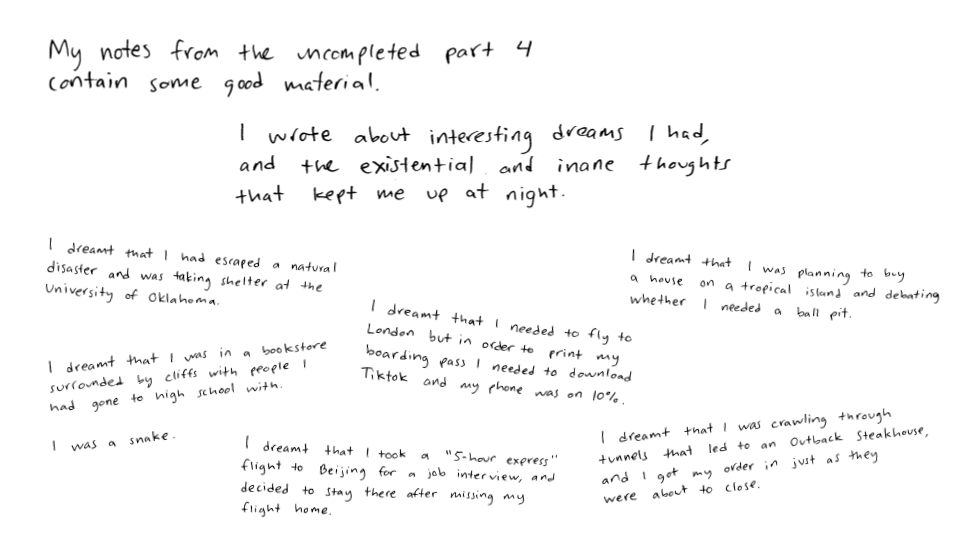 My notes from the uncompleted part 4
contain some good material.
I wrote about interesting dreams I had,
and the existential and inane thoughts
that kept me up at night.
I dreamt that I had escaped a natural
disaster and was taking shelter at the
University of Oklahoma.
I dreamt that I was planning to buy
a house on a tropical island and debating
whether I needed a ball pit.
I dreamt that I needed to fly to
London but in order to print my
boarding pass I needed to download
Tiktok and my phone was on 10%.
I dreamt that I was in a bookstore
surrounded by cliffs with people I
had gone to high school with.
I was a snake.
I dreamt that I took a "5-hour express"
flight to Beijing for a job interview, and
decided to stay there after missing my
flight home.
I dreamt that I was crawling through
tunnels that led to an Outback Steakhouse,
and I got my order in just as they
were about to close.